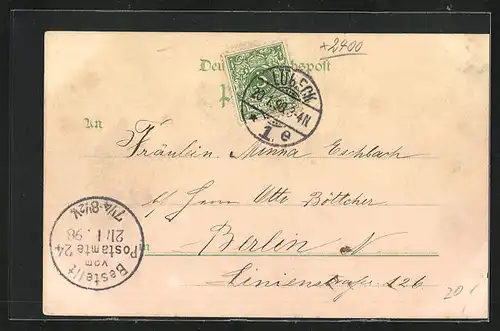 +2400
Deu spost
LÜBECK
An
1. e
Fräulein Minna Eschbach
b/ Herrn Otto Böttcher
in Berlin N
Linienstraße 126
Bestellt
vom
Postamte 24
21/1.98
7¼-8½V.
20